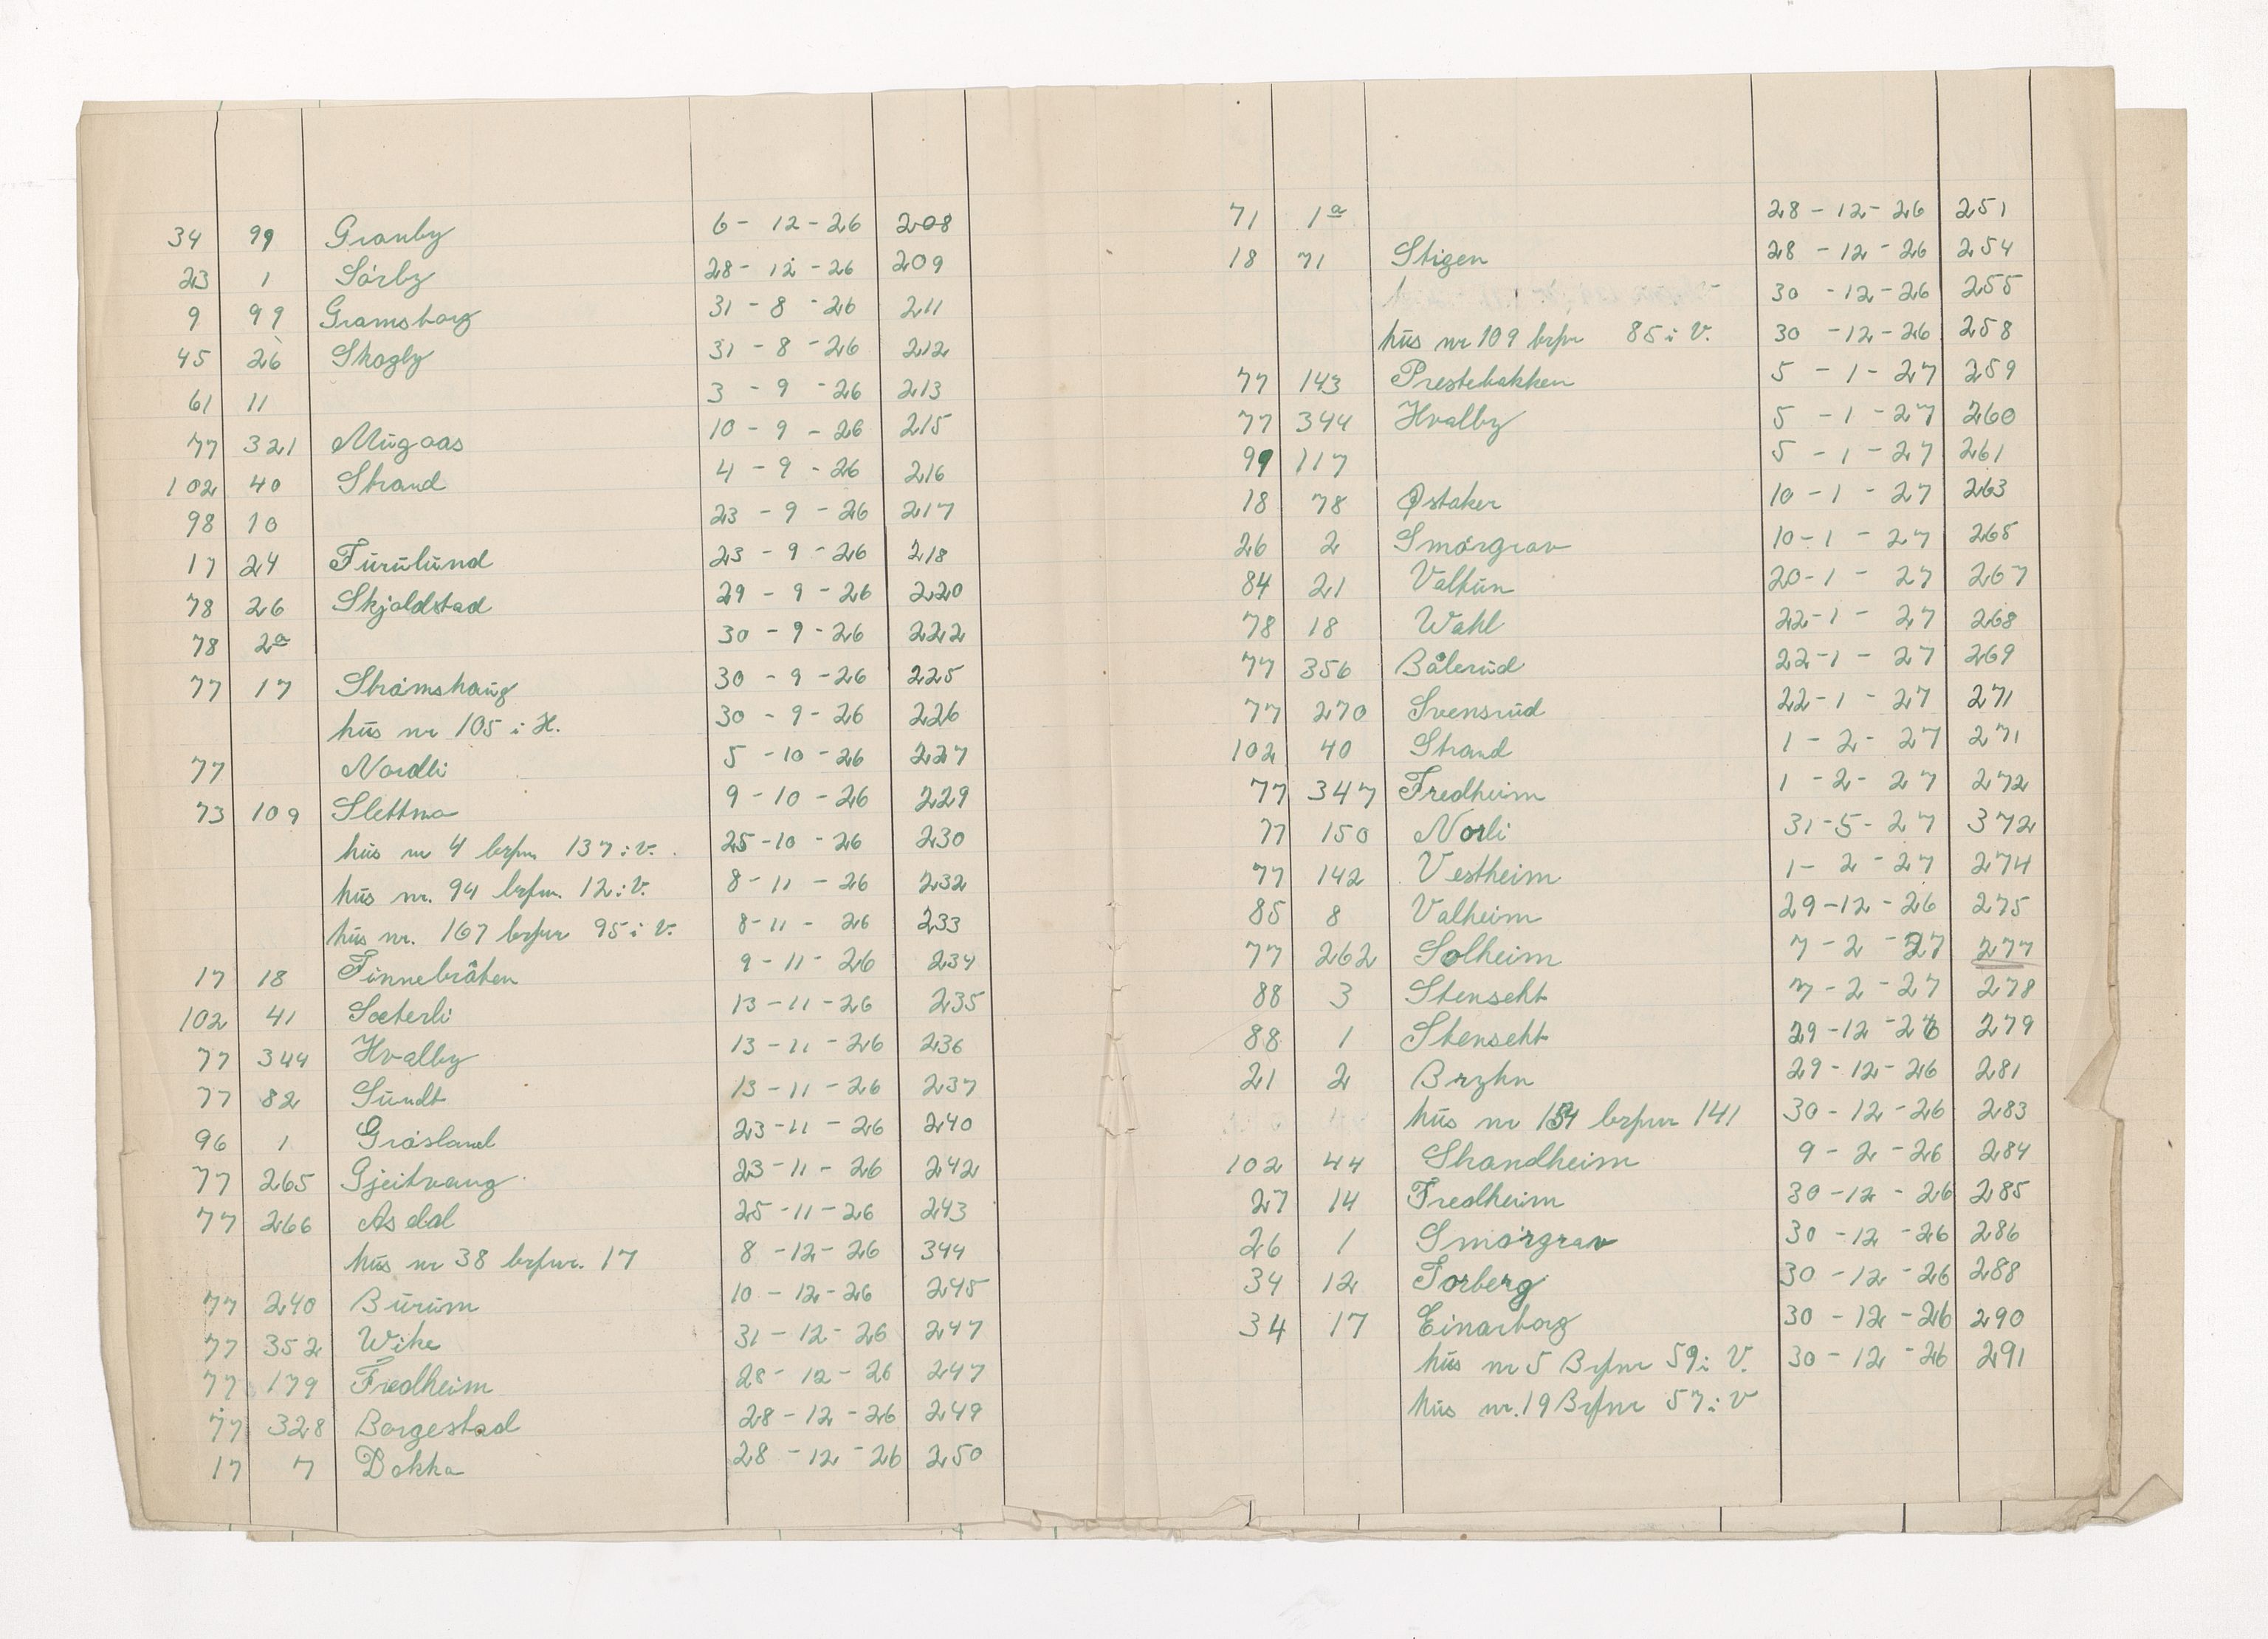 34 99 Granby 6 - 12 - 26 208
23 1 Sörby 28 - 12 - 26 209
9 99 Gramsborg 31 - 8 - 26 211
45 26 Skogly 31 - 8 - 26 212
61 11 3 - 9 - 26 213
77 321 Mugaas 10 - 9 - 26 215
102 40 Strand 4 - 9 - 26 216
98 10 23 - 9 - 26 217
17 24 Furulund 23 - 9 - 26 218
78 26 Skjoldstad 29 - 9 - 26 220
78 2a 30 - 9 - 26 222
77 17 Strömshaug 30 - 9 - 26 225
hus nr 105 i H. 30 - 9 - 26 226
77 Nordli 5 - 10 - 26 227
73 109 Slettmo 9 - 10 - 26 229
hus nr 4 brpn. 137 i V. 25 - 10 - 26 230
hus nr. 94 brpn. 12 i V. 8 - 11 - 26 232
hus nr. 167 brpnr 95 i V. 8 - 11 - 26 233
17 18 Finnebråten 9 - 11 - 26 234
102 41 Sæterli 13 - 11 - 26 235
77 344 Hvalby 13 - 11 - 26 236
77 82 Sundt 13 - 11 - 26 237
96 1 Grösland 23 - 11 - 26 240
77 265 Gjeitvang 23 - 11 - 26 242
77 266 Asdal 25 - 11 - 26 243
hus nr 38 brpnr. 17 8 - 12 - 26 344
77 240 Burum 10 - 12 - 26 245
77 352 Wike 31 - 12 - 26 247
77 179 Fredheim 28 - 12 - 26 247
77 328 Borgestad 28 - 12 - 26 249
17 7 Dokka 28 - 12 - 26 250
71 1a 28 - 12 - 26 251
18 71 Stigen 28 - 12 - 26 254
30 - 12 - 26 255
hus nr 109 brpnr 85 i V. 30 - 12 - 26 258
77 143 Prestebakken 5 - 1 - 27 259
77 344 Hvalby 5 - 1 - 27 260
99 117 5 - 1 - 27 261
18 78 Østaker 10 - 1 - 27 263
26 2 Smörgrav 10 - 1 - 27 265
84 21 Valtun 20 - 1 - 27 267
78 18 Wahl 22 - 1 - 27 268
77 356 Bålerud 22 - 1 - 27 269
77 270 Svensrud 22 - 1 - 27 271
102 40 Strand 1 - 2 - 27 271
77 347 Fredheim 1 - 2 - 27 272
77 150 Norli 31 - 5 - 27 372
77 142 Vestheim 1 - 2 - 27 274
85 8 Valheim 29 - 12 - 26 275
77 262 Solheim 7 - 2 - 27 277
88 3 Stenseht 7 - 2 - 27 278
88 1 Stenseht 29 - 12 - 26 279
21 2 Brzhn 29 - 12 - 26 281
hus nr 134 brpnr 141 30 - 12 - 26 283
102 44 Strandheim 9 - 2 - 26 284
27 14 Fredheim 30 - 12 - 26 285
26 1 Smörgrav 30 - 12 - 26 286
34 12 Torberg 30 - 12 - 26 288
34 17 Einarborg 30 - 12 - 26 290
hus nr 5 Brpnr 59 i V. 30 - 12 - 26 291
hus nr. 19 Brpnr 57 i V